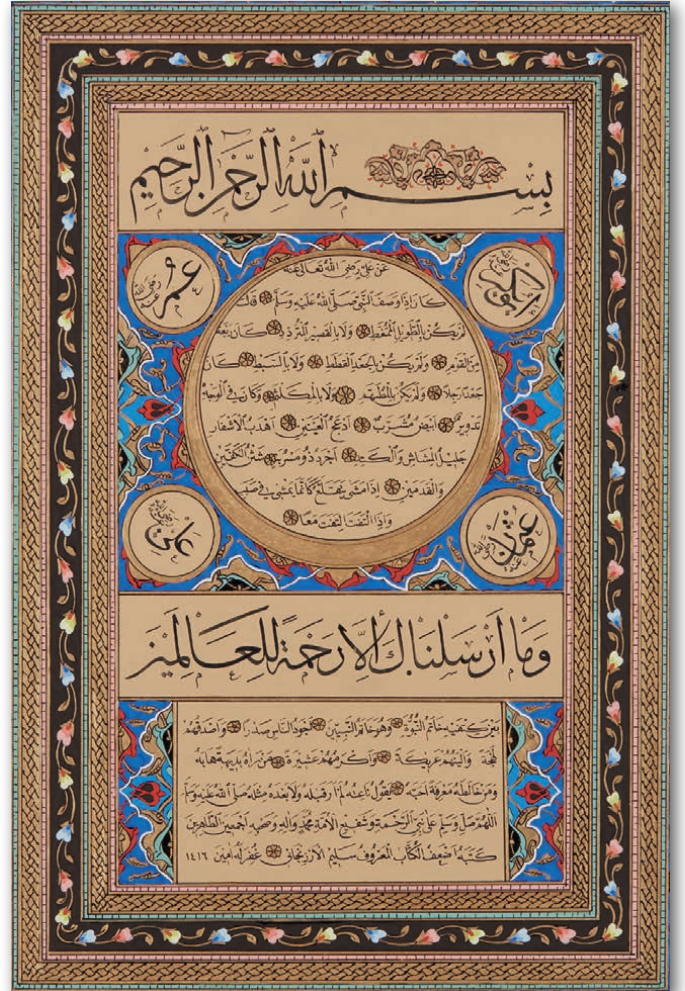 بِسْمِ اللهِ الرَّحْمٰنِ الرَّحِيمِ
ابوبكر رضي الله عنه
عمر رضي الله عنه
عَنْ عَلِيٍّ رَضِيَ اللهُ تَعَالَى عَنْهُ
كَانَ إِذَا وَصَفَ النَّبِيَّ صَلَّى اللهُ عَلَيْهِ وَسَلَّمَ قَالَ
لَمْ يَكُنْ بِالطَّوِيلِ الْمُمَّغِطِ وَلَا بِالْقَصِيرِ الْمُتَرَدِّدِ كَانَ رَبْعَةً
مِنَ الْقَوْمِ وَلَمْ يَكُنْ بِالْجَعْدِ الْقَطَطِ وَلَا بِالسَّبِطِ كَانَ
جَعْدًا رَجِلًا وَلَمْ يَكُنْ بِالْمُطَهَّمِ وَلَا بِالْمُكَلْثَمِ وَكَانَ فِي الْوَجْهِ
تَدْوِيرٌ أَبْيَضُ مُشْرَبٌ أَدْعَجُ الْعَيْنَيْنِ أَهْدَبُ الْأَشْفَارِ
جَلِيلُ الْمُشَاشِ وَالْكَتَدِ أَجْرَدُ ذُو مَسْرُبَةٍ شَثْنُ الْكَفَّيْنِ
وَالْقَدَمَيْنِ إِذَا مَشَى يَتَقَلَّعُ كَأَنَّمَا يَمْشِي فِي صَبَبٍ
وَإِذَا الْتَفَتَ الْتَفَتَ مَعًا
عثمان رضي الله عنه
علي رضي الله عنه
وَمَا أَرْسَلْنَاكَ إِلَّا رَحْمَةً لِلْعَالَمِينَ
بَيْنَ كَتِفَيْهِ خَاتَمُ النُّبُوَّةِ وَهُوَ خَاتَمُ النَّبِيِّينَ أَجْوَدُ النَّاسِ صَدْرًا وَأَصْدَقُهُمْ
لَهْجَةً وَأَلْيَنُهُمْ عَرِيكَةً وَأَكْرَمُهُمْ عَشِيرَةً مَنْ رَآهُ بَدِيهَةً هَابَهُ
وَمَنْ خَالَطَهُ مَعْرِفَةً أَحَبَّهُ يَقُولُ نَاعِتُهُ لَمْ أَرَ قَبْلَهُ وَلَا بَعْدَهُ مِثْلَهُ صَلَّى اللهُ عَلَيْهِ وَسَلَّمَ
اللّٰهُمَّ صَلِّ وَسَلِّمْ عَلَى نَبِيِّ الرَّحْمَةِ وَشَفِيعِ الْأُمَّةِ مُحَمَّدٍ وَآلِهِ وَصَحْبِهِ أَجْمَعِينَ الطَّاهِرِينَ
كَتَبَهُ أَضْعَفُ الْكُتَّابِ الْمَعْرُوفُ سَلِيم الْأَرْزِنْجَانِي غُفِرَ لَهُ آمِينَ ١٤١٦